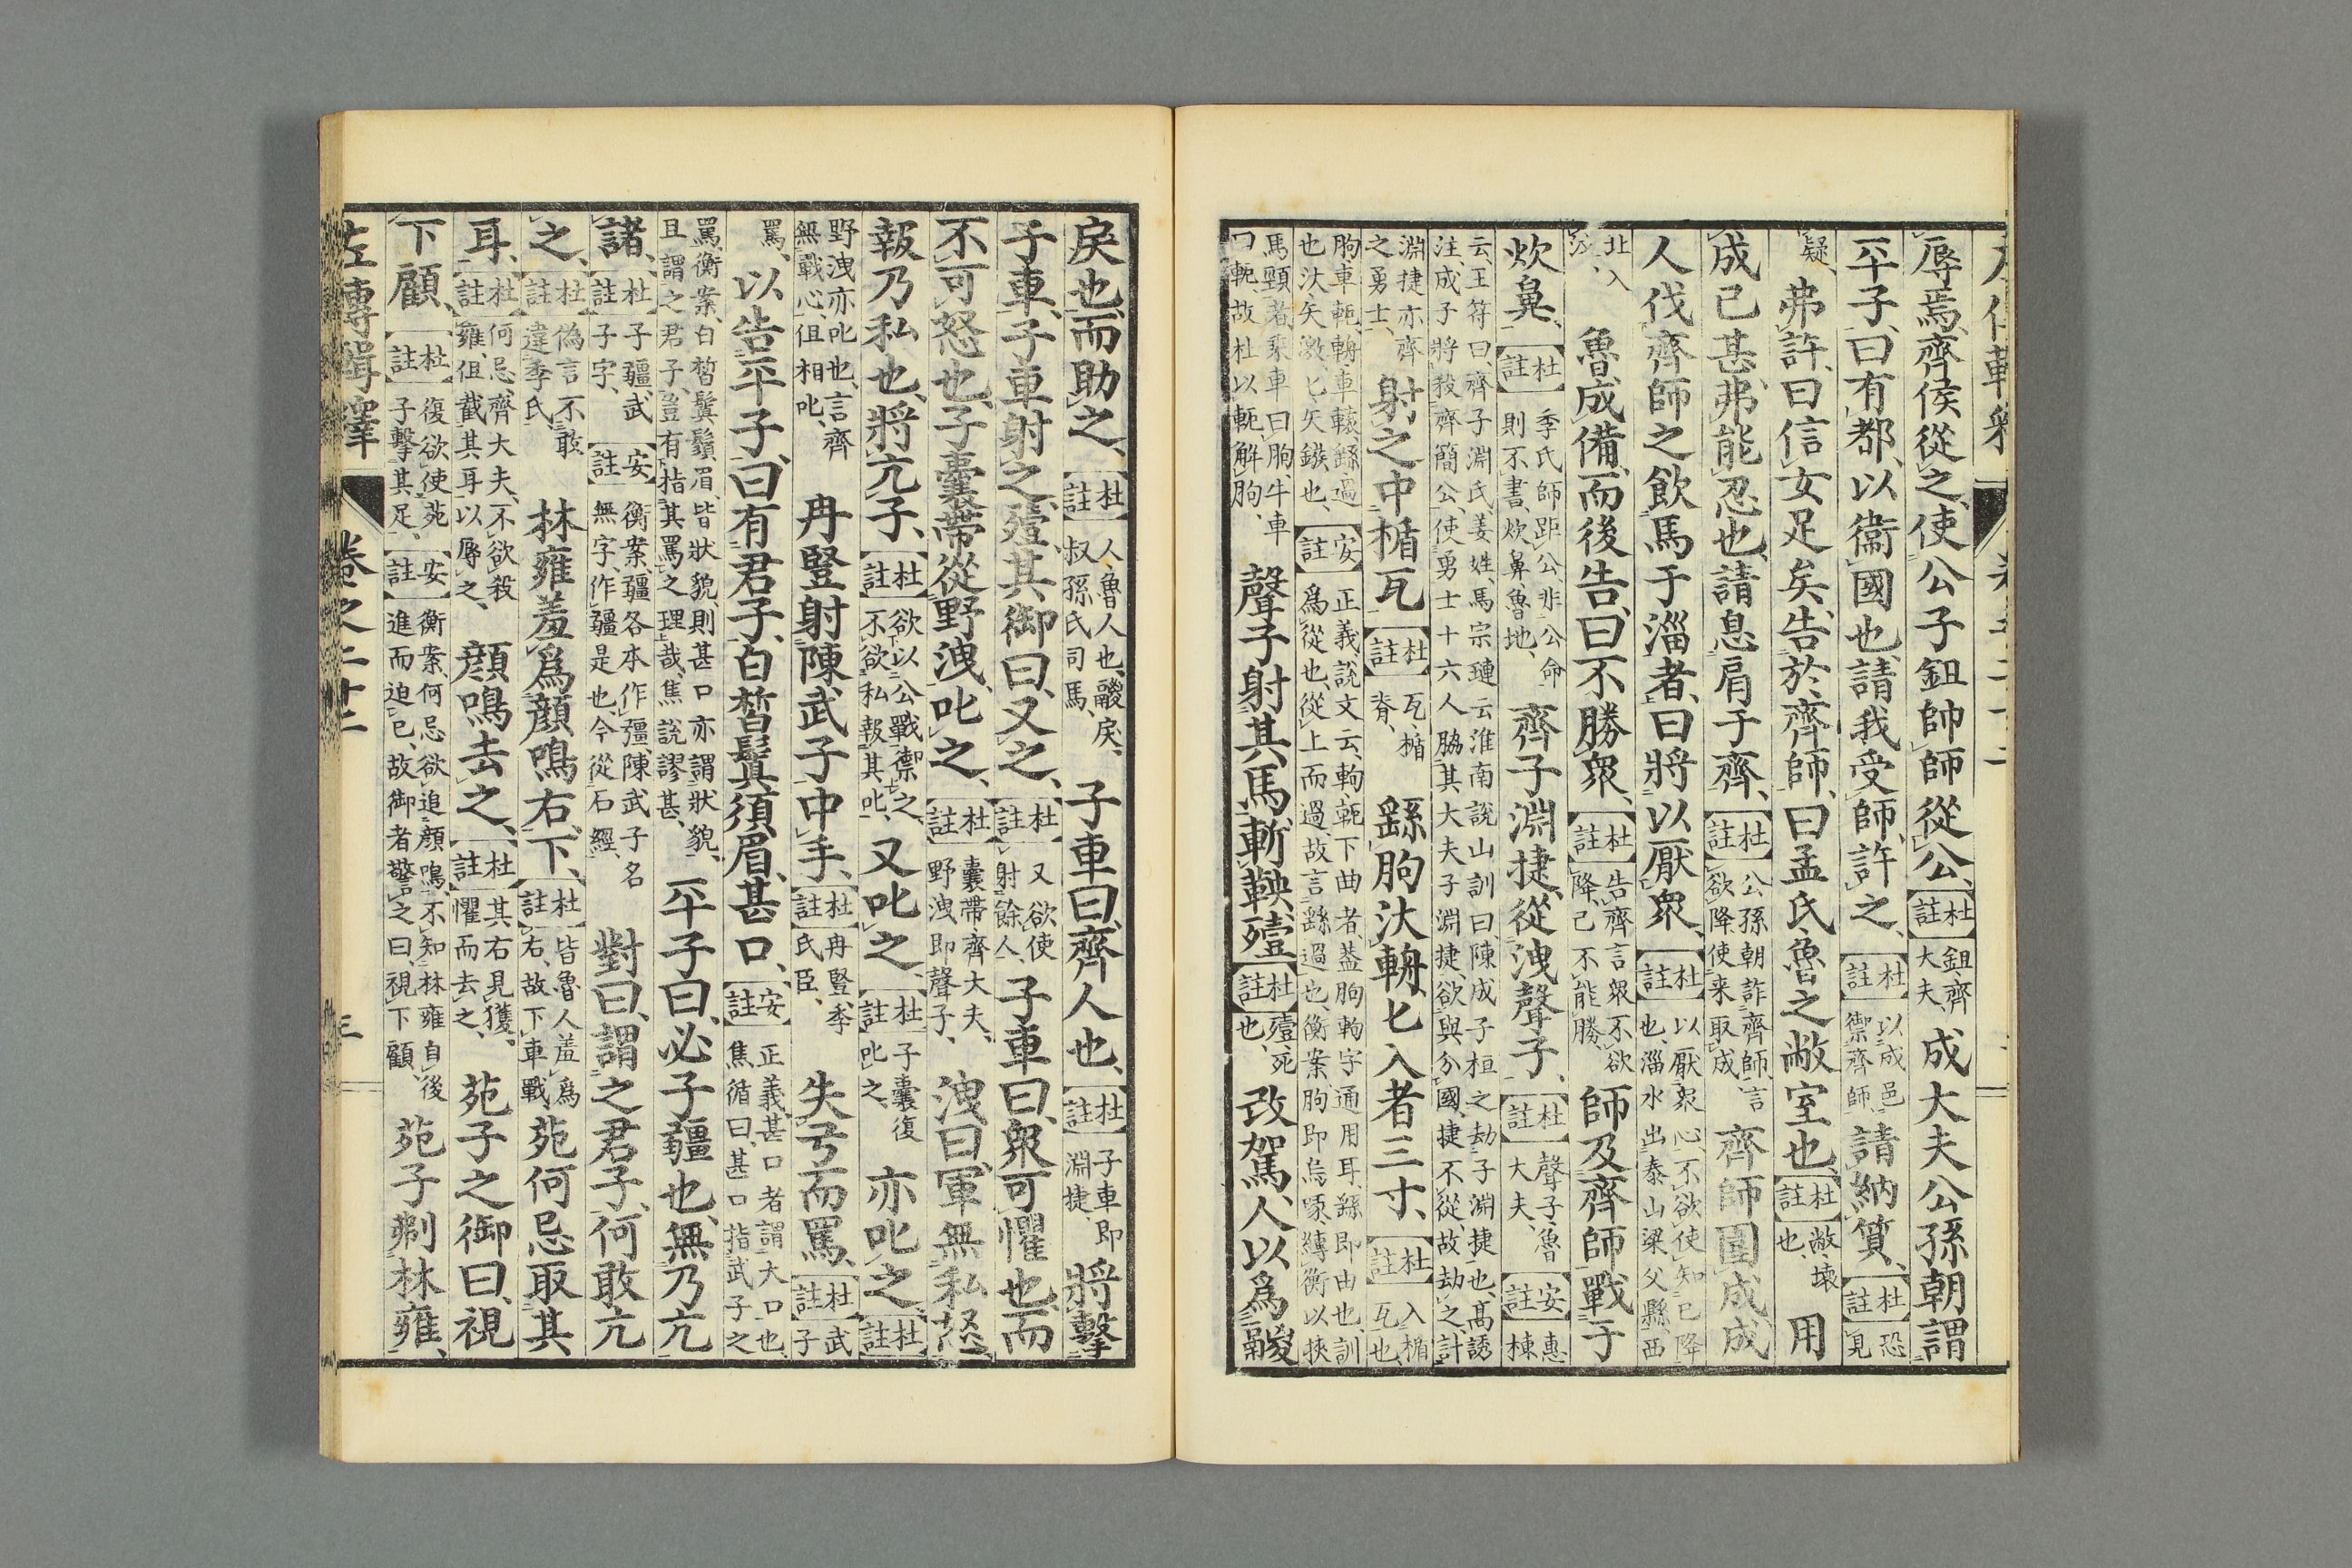 辱焉、齊侯從之、使公子鉏帥師從公、【杜註】鉏、齊大夫、成大夫公孫朝謂
平子、曰有都、以衞國也、請我受師、許之、【杜註】以成邑禦齊師、請納質、【杜註】恐見
疑、弗許、曰信女足矣、告於齊師、曰孟氏、魯之敝室也、【杜註】敝、壞也、用
成已甚、弗能忍也、請息肩于齊、【杜註】公孫朝詐齊師、言欲降、使來取成、齊師圍成、成
人伐齊師之飮馬于淄者、曰將以厭衆、【杜註】以厭衆心、不欲使知已降也、淄水出泰山梁父縣西
北、入汶、魯成備、而後告、曰不勝衆、【杜註】告齊言衆不欲降、已不能勝、師及齊師戰于
炊鼻、【杜註】季氏師距公、非公命則不書、炊鼻、魯地、齊子淵捷、從洩聲子、【杜註】聲子、魯大夫、【安註】惠棟
云、王符曰、齊子淵氏、姜姓、馬宗璉云淮南說山訓曰、陳成子桓之劫子淵捷也、高誘注、成子將殺齊簡公、使勇士十六人脇其大夫子淵捷、欲與分國、捷不從、故劫之、計
淵捷亦齊之勇士、射之中楯瓦、【杜註】瓦、楯脊、繇朐汰輈、匕入者三寸、【杜註】入楯瓦也、
朐、車軛、輈、車轅、繇過也、汰矢激、匕矢鏃也、【安註】正義、說文云、軥、軛下曲者、葢朐軥字通用耳、繇即由也、訓爲從也、從上而過、故言繇過也、衡案、朐即烏啄、縳衡以挾
馬頸者、乘車曰朐、牛車曰軛、故杜以軛解朐、聲子射其馬、斬鞅、殪、【杜註】殪、死也、改駕、人以爲鬷
戾也、而助之、【杜註】人、魯人也、鬷戾、叔孫氏司馬、子車曰、齊人也、【杜註】子車即淵捷、將擊
子車、子車射之、殪、其御曰、又之、【杜註】又欲使射餘人、子車曰、衆可懼也、而
不可怒也、子囊帶從野洩、叱之、【杜註】囊帶、齊大夫、野洩即聲子、洩曰、軍無私怒、
報乃私也、將亢子、【杜註】欲以公戰禦之、不欲私報其叱、又叱之、【杜註】子囊復叱之、亦叱之、【杜註】
野洩亦叱也、言齊無戰心、但相叱、冉豎射陳武子、中手、【杜註】冉豎、季氏臣、失弓而罵、【杜註】武子
罵、以告平子、曰有君子、白皙鬒須眉、甚口、【安註】正義、甚口者、謂大口也、焦循曰、甚口指武子之
罵、衡案、白皙鬒鬚眉、皆狀貌、則甚口亦謂狀貌、且謂之君子、豈有指其罵之理哉、焦說謬甚、平子曰、必子彊也、無乃亢
諸、【杜註】子彊、武子字、【安註】衡案、彊各本作疆、陳武子名無字、作彊是也、今從石經、對曰、謂之君子、何敢亢
之、【杜註】僞言不敢違季氏、林雍羞爲顏鳴右、下、【杜註】皆魯人、羞爲右、故下車戰、苑何忌取其
耳、【杜註】何忌、齊大夫、不欲殺雍、但截其耳以辱之、顏鳴去之、【杜註】其右見獲、懼而去之、苑子之御曰、視
下顧、【杜註】復欲使苑子擊其足、【安註】衡案、何忌欲追顏鳴、不知林雍自後進而迫已、故御者警之曰、視下顧、苑子𠛱林雍、
左傳輯釋 卷之二十二